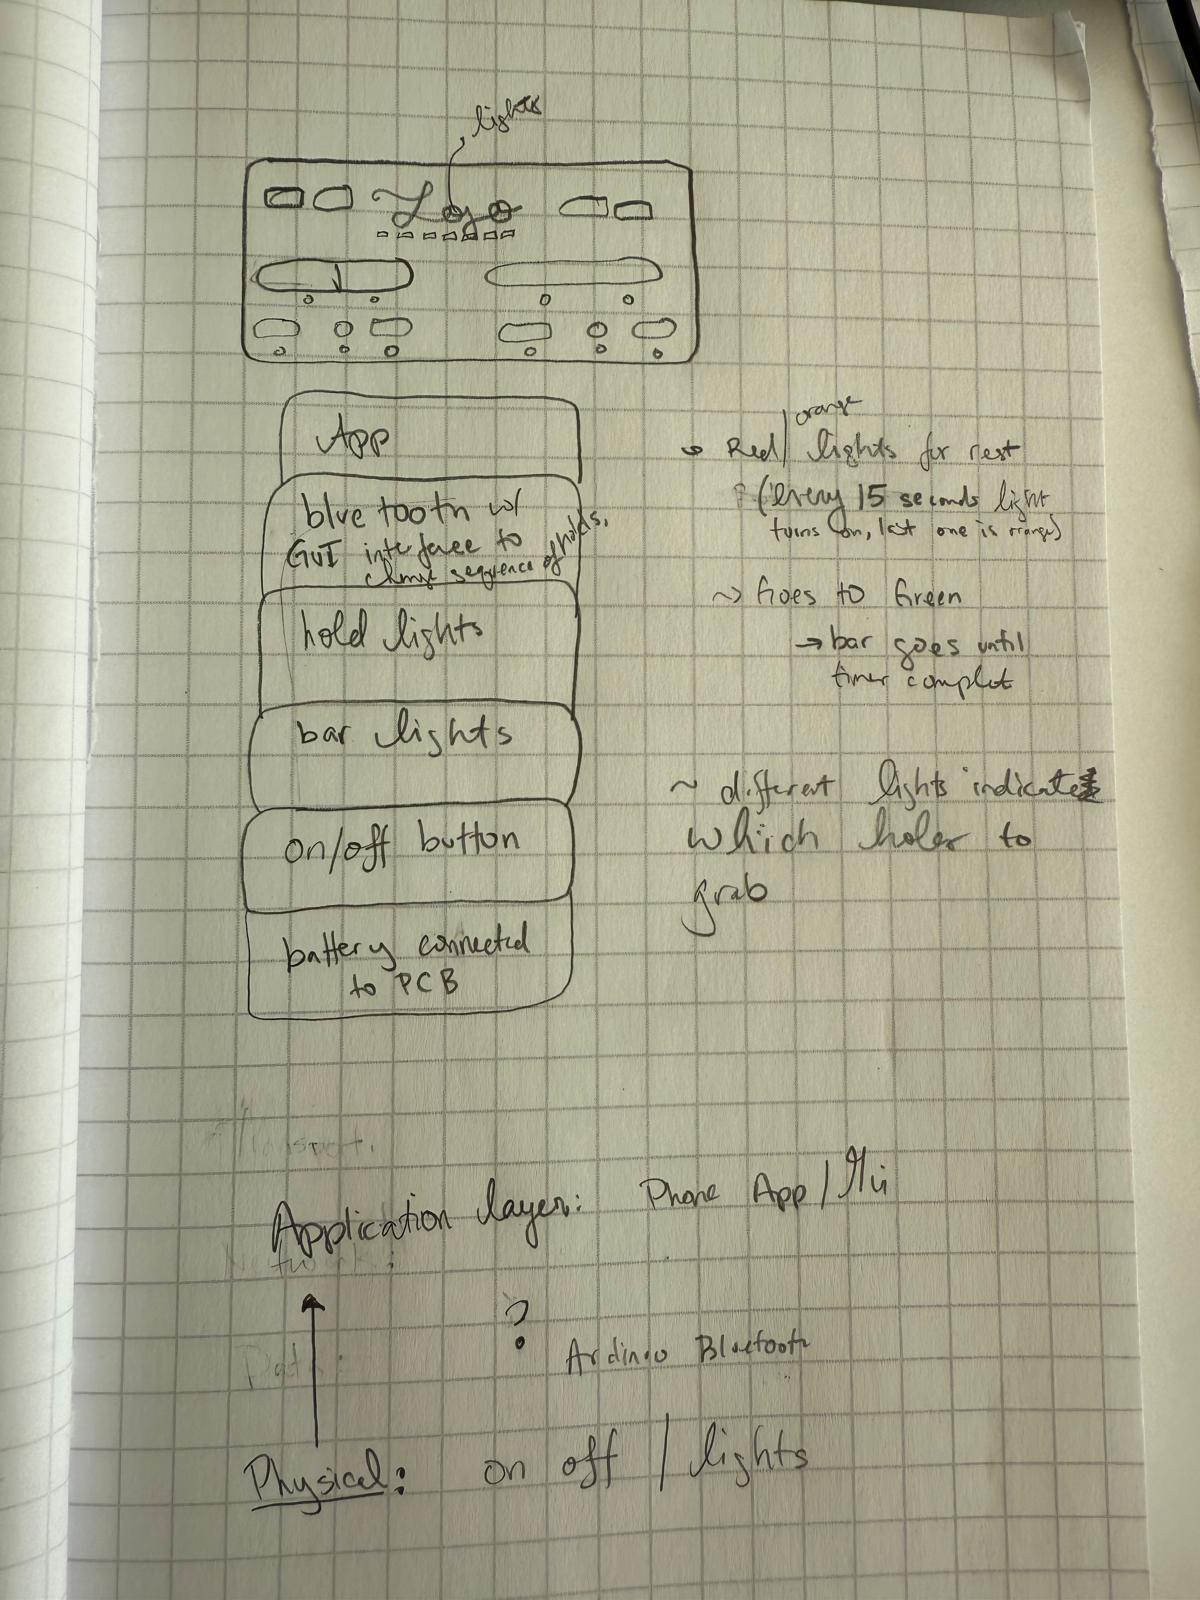 lights
Logo
App
bluetooth w/
GUI interface to
change sequence of holds.
hold lights
bar lights
on/off button
battery connected
to PCB
orange
Red/ lights for rest
(every 15 seconds light
turns on, last one is orange)
~> Goes to Green
→ bar goes until
timer complet
~ different lights indicate
which holes to
grab
Transport.
Application layer: Phone App / Gui
Network:
?
Data: Ardinuo Bluetooth
Physical: on off / lights